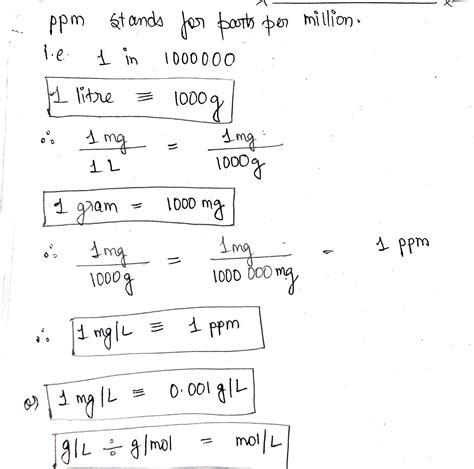 ppm stands for parts per million.
i.e 1 in 1000000
1 litre ≡ 1000g
∴ 1mg/1L = 1mg/1000g
1 gram = 1000 mg
∴ 1mg/1000g = 1mg/1000 000mg = 1 ppm
∴ 1 mg/L ≡ 1 ppm
or 1 mg/L ≡ 0.001 g/L
g/L ÷ g/mol = mol/L